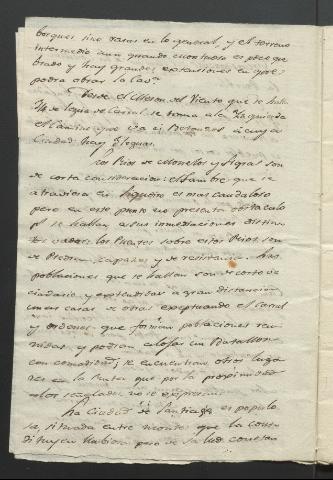 bosques sino rasos en lo general, y el terreno
intermedio aun quando cuontuoso es poco que
brado y hay grandes extensiones en que
podra obrar la Cavª.
Desde el Meson del Viento que se halla
de legua de Carral se toma a la Izquierda
el Camino que va a Betanzos a cuya
Ciudad hay 3 leguas.
Los Rios de Mercellos y Sigral son
de corta consideracion: el Tambre, que se
atraviesa en Sigueiro es mas caudaloso
pero en este punto no presenta obstaculo
pr. se hallan en sus inmediaciones distin
tos vados. Los Puentes sobre estos Rios son
de Piedra, Capaces y de resistencia. Las
poblaciones que se hallan son de corto ve
cindario, y extendidas a gran distancia
unas casas de otras exceptuando el Carral
y Ordenes que forman poblaciones reu
nidas, y podran alojar un Batallon
con comodidad; se encuentran otros luga
res en la Ruta que por la proximidad
a los señalados no se expresan.
La Ciudad de Santiago es populo
sa, situada entre montes que la cons
tituyen lluviosa pero de salud constan